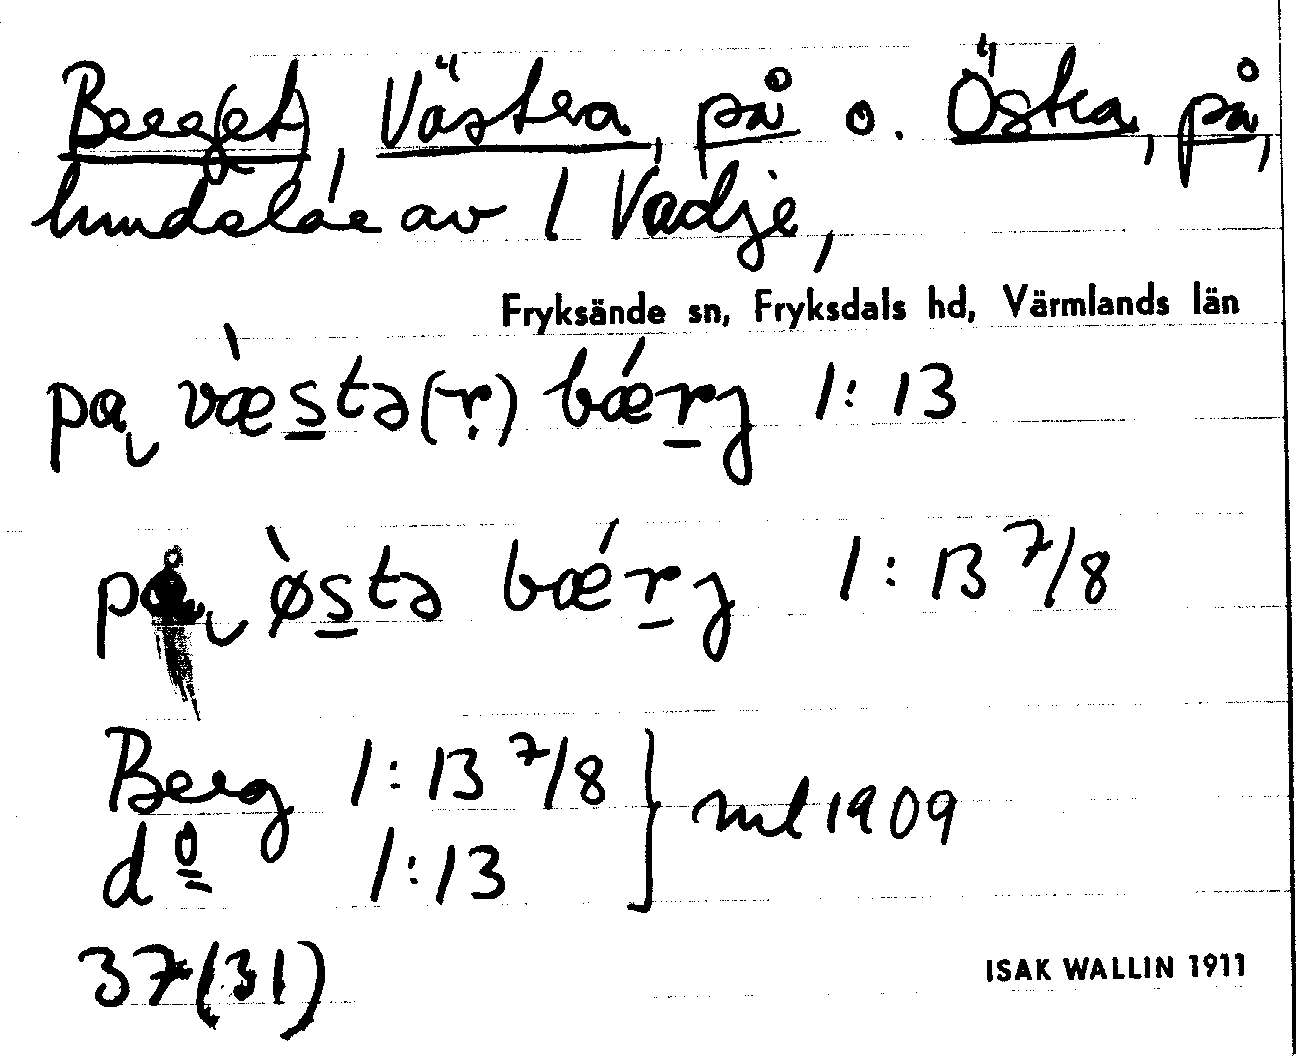 Berg(et), Västra, på o. Östra, på,
hmdelar av 1 Vadje,
Fryksände sn, Fryksdals hd, Värmlands län
pɑ̨ væ̀stə(r̩) bǽrj 1:13
pɑ̨ ø̀stə bǽrj 1:13 7/8
Berg 1:13 7/8 } ml 1909
dº 1:13
37(31)
ISAK WALLIN 1911